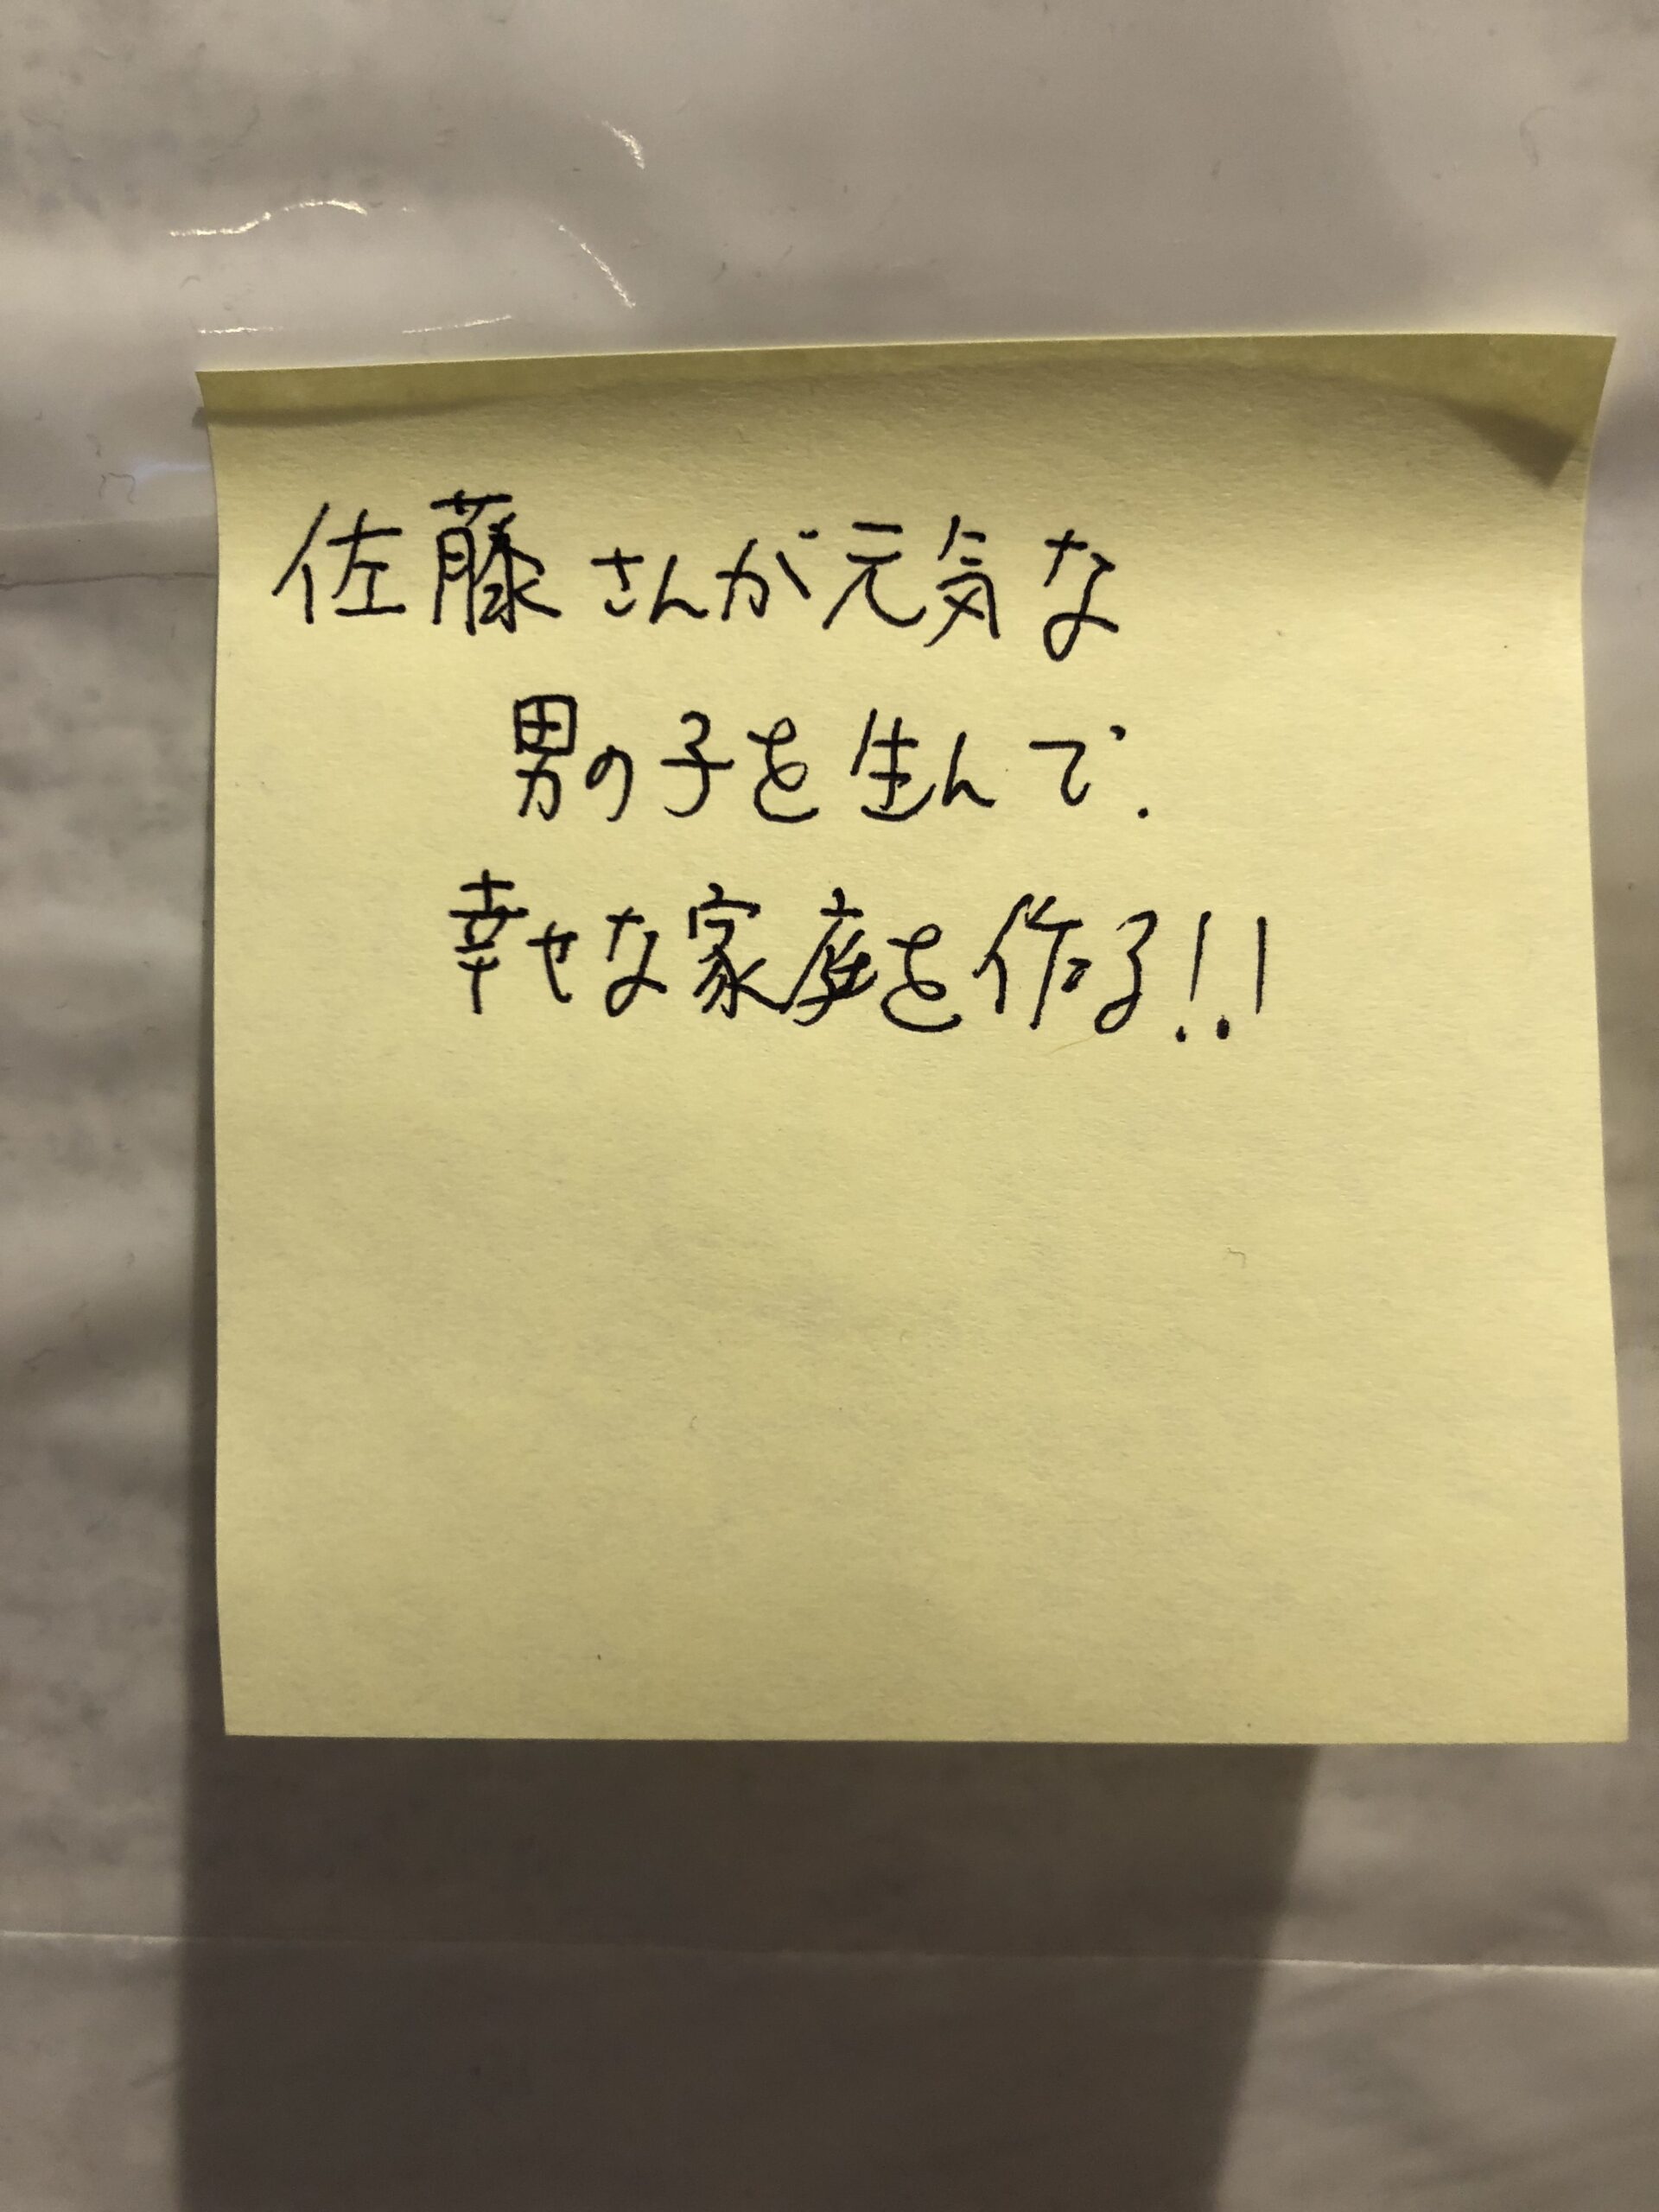 佐藤さんが元気な
男の子を生んで.
幸せな家庭を作る!!